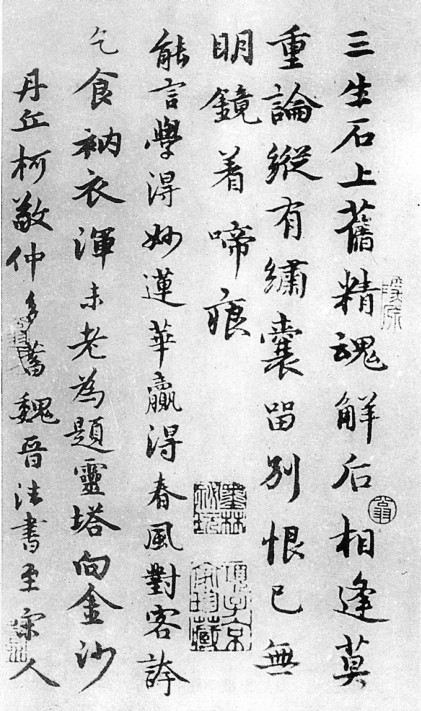 三生石上舊精魂解后相逢莫
重論縱有繡囊留別恨已無
明鏡着啼痕
能言學得妙蓮華贏得春風對客誇
乞食衲衣渾未老為題靈塔向金沙
丹丘柯敬仲多蓄魏晉法書至宋人
墨林
秘玩
項子京
家珍藏